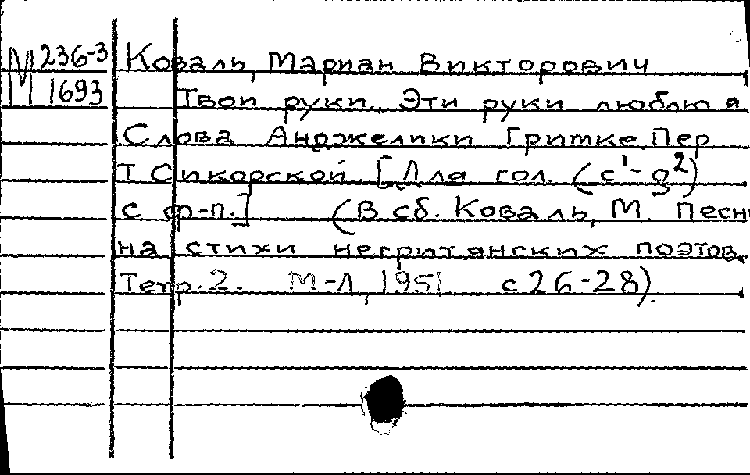 М 236-3
М 1693
Коваль, Мариан Викторович
Твои руки. Эти руки люблю я
Слова Анджелики Гримке. Пер.
Т Сикорской [Для гол. (c¹-g²)
с ф-п.] (В сб. Коваль, М. Песни
на стихи негритянских поэтов.
Тетр. 2. М-Л, 1951 с 26-28).